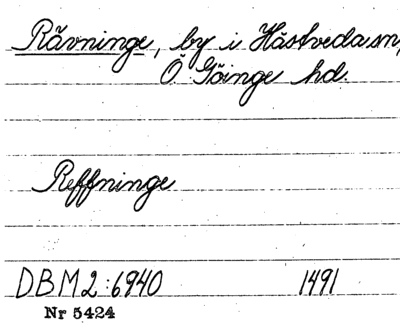 Rävninge, by i Hästveda sn,
Ö Göinge hd.
Reffninge
DBM2:6940 1491
Nr 5424